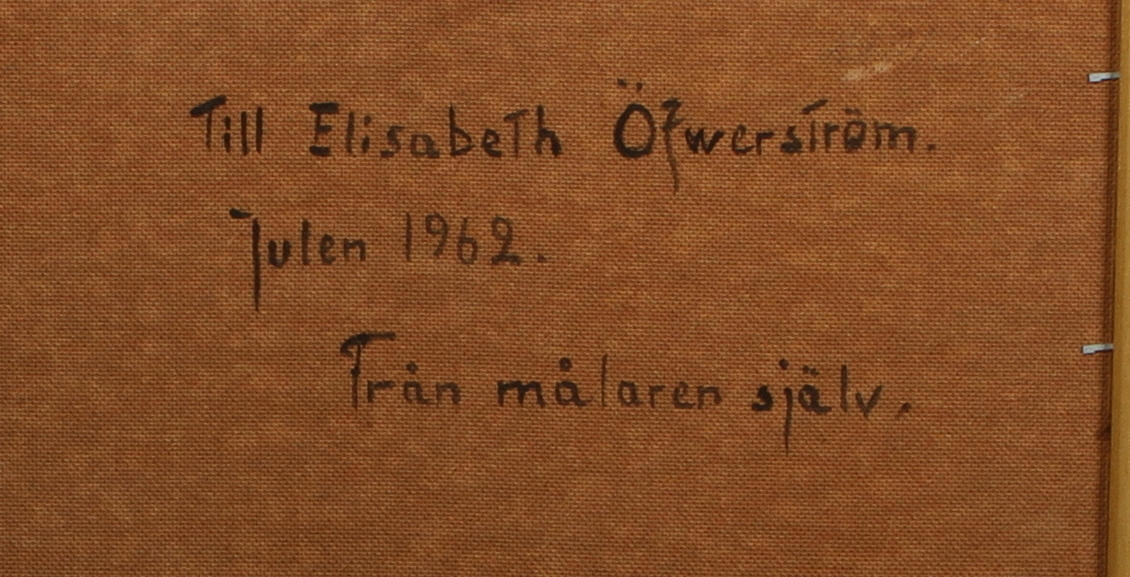 Till Elisabeth Öfwerström.
Julen 1962.
Från målaren själv.